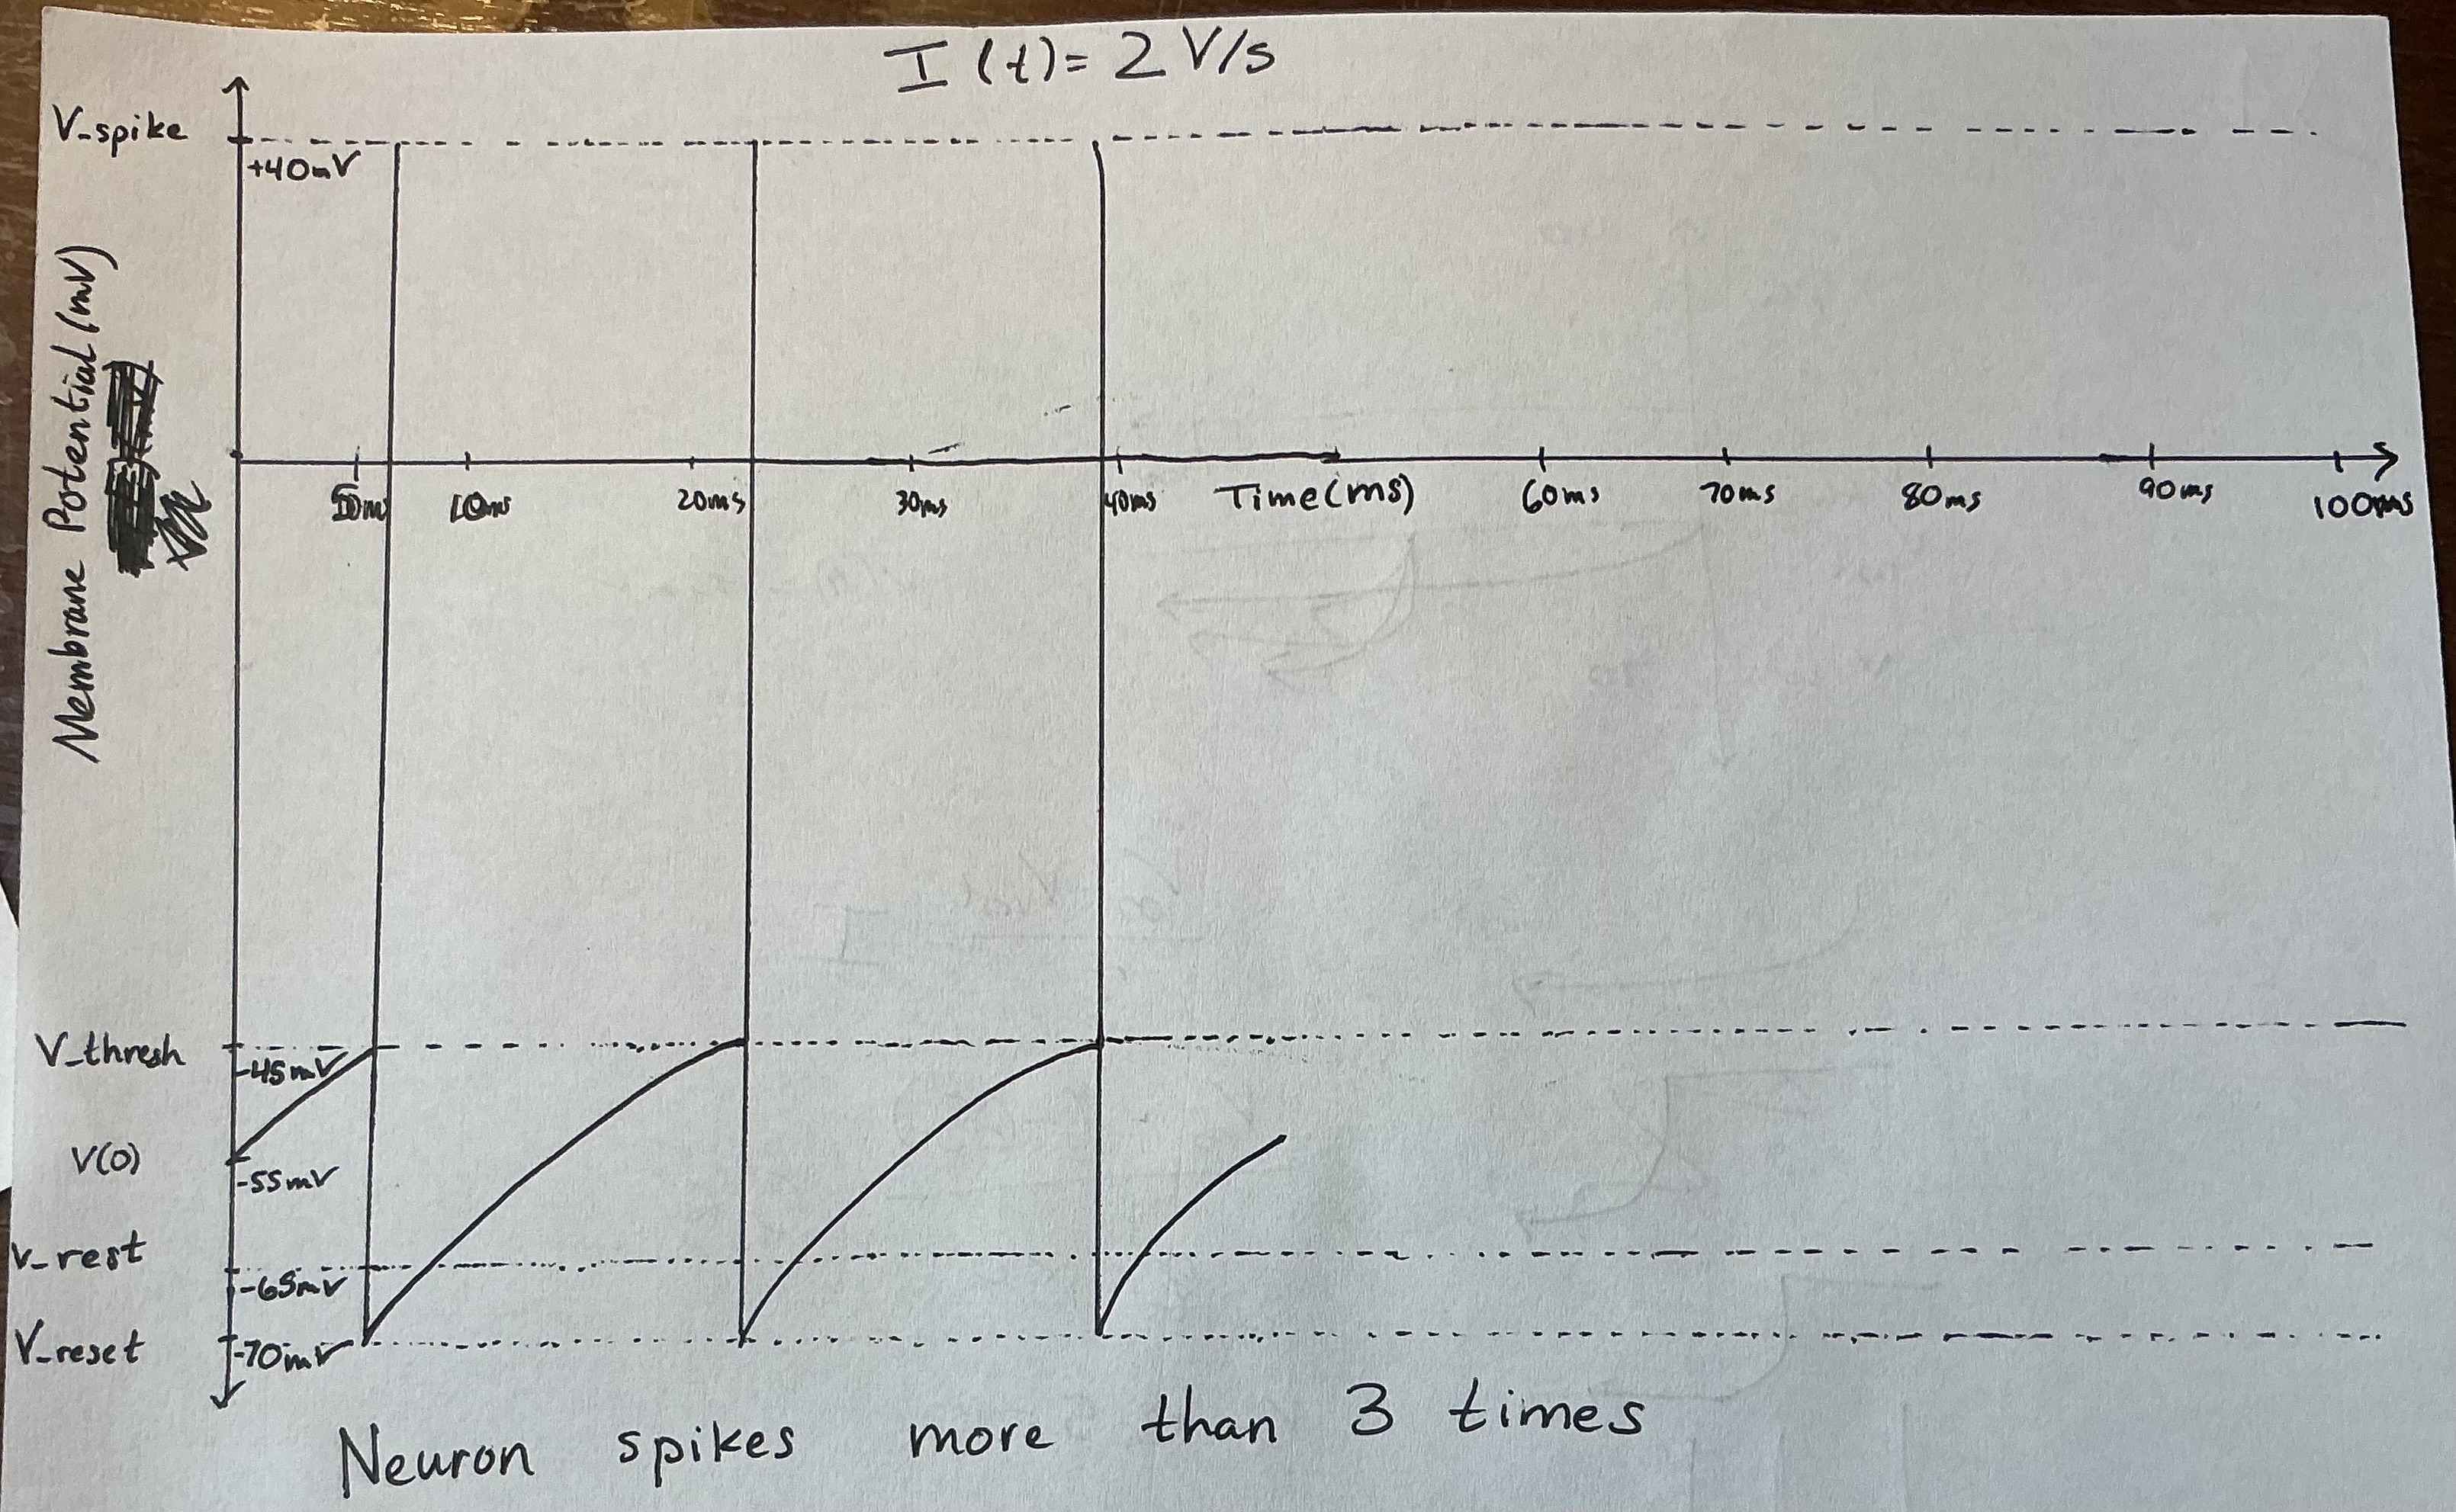 I (t) = 2 V/s
V_spike
+40mV
Membrane Potential (mV)
5ms 10ms 20ms 30ms 40ms Time(ms) 60ms 70ms 80ms 90ms 100ms
V_thresh
-45mV
V(0)
-55mV
V_rest
-65mV
V_reset
-70mV
Neuron spikes more than 3 times